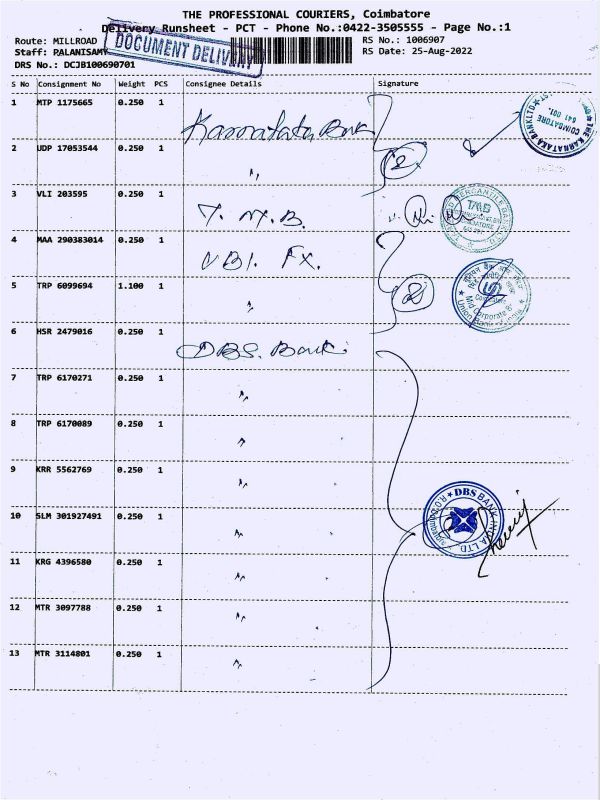 THE PROFESSIONAL COURIERS, Coimbatore
Delivery Runsheet - PCT - Phone No.:0422-3505555 - Page No.:1
Route: MILLROAD
RS No.: 1006907
Staff: PALANISAMY
RS Date: 25-Aug-2022
DOCUMENT DELIVERY
DRS No.: DCJB100690701
S No Consignment No Weight PCS Consignee Details Signature
1 MTP 1175665 0.250 1 Karnataka Bank
THE KARNATAKA BANK LTD COIMBATORE 641 001
2 UDP 17053544 0.250 1 "
3 VLI 203595 0.250 1 T. M. B.
TMB
4 MAA 290383014 0.250 1 UBI. FX.
5 TRP 6099694 1.100 1 "
Mid Corporate Br
Union Bank of India
6 HSR 2479016 0.250 1 DBS. Bank
7 TRP 6170271 0.250 1 "
8 TRP 6170089 0.250 1 "
9 KRR 5562769 0.250 1 "
DBS BANK INDIA LTD.
10 SLM 301927491 0.250 1 "
11 KRG 4396580 0.250 1 "
12 MTR 3097788 0.250 1 "
13 MTR 3114801 0.250 1 "